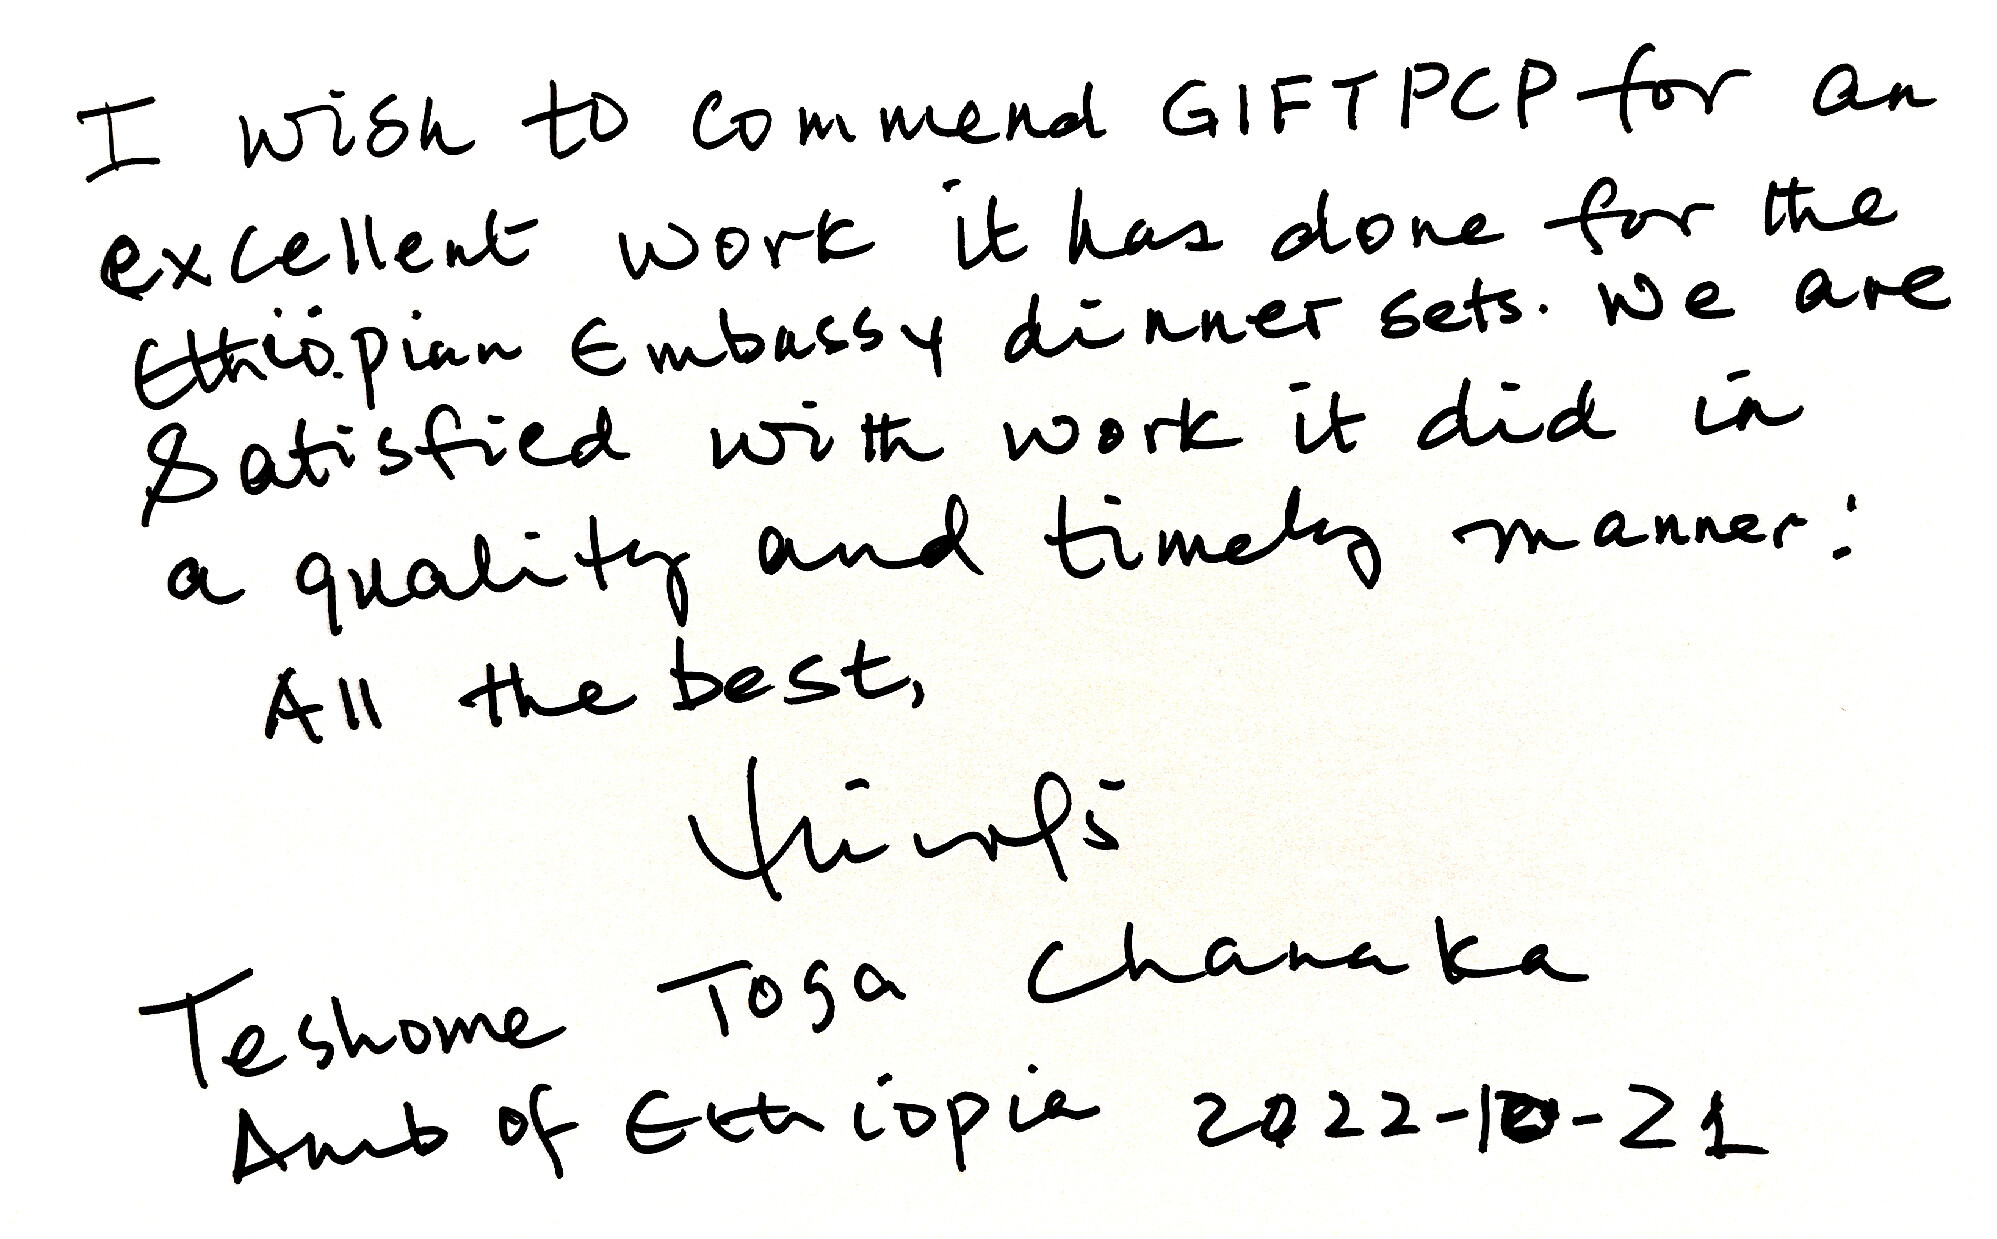 I wish to commend GIFTPCP for an
excellent work it has done for the
Ethiopian Embassy dinner sets. We are
Satisfied with work it did in
a quality and timely manner!
All the best,
Teshome Toga Chanaka
Amb of Ethiopia 2022-10-21